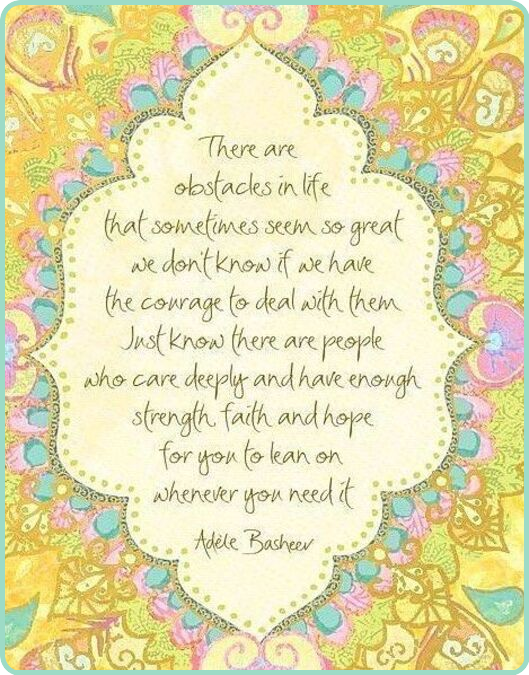 There are
obstacles in life
that sometimes seem so great
we don't know if we have
the courage to deal with them
Just know there are people
who care deeply and have enough
strength, faith and hope
for you to lean on
whenever you need it
Adèle Basheer